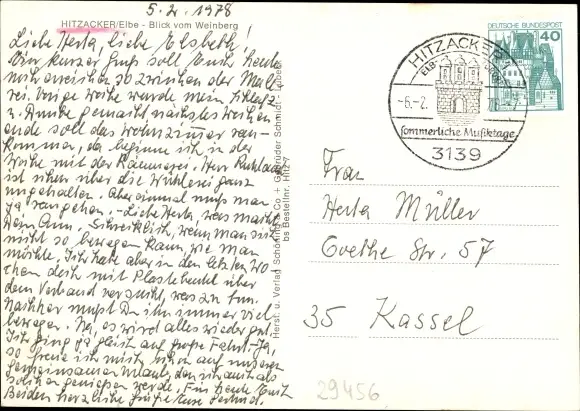 5.2.1978
HITZACKER/Elbe - Blick vom Weinberg
Liebe Herta, liebe Elsbeth!
Ein kurzer Gruß soll Euch heute
noch erreichen so zwischen der Male
rei. Vorige Woche wurde mein Schlafz
z. Ende gemacht, nächstes Wochen
ende soll das Wohnzimmer ran-
kommen, da beginne ich in der
Woche mit der Räumerei. Herr
ist schon über die Wühlerei ganz
ungehalten. Aber einmal muß man
ja rangehen. - Liebe Herta, was macht
Dein Arm. Schrecklich, wenn man sich
nicht so bewegen kann, wie man
möchte. Ich habe aber in den letzten Wo
chen auch mit Plastebeutel über
dem Verband versucht, was zu tun.
Nachher mußt Du ihn immer viel
bewegen. Na, es wird alles wieder gut.
Ich ging ja gleich auf große Fahrt. Ja,
so freue ich mich schon auf unseren
gemeinsamen Urlaub, den ich auch als
solchen genießen werde. Für heute Euch
Beiden herzliche Grüße Eure
Herst. u. Verlag Schöning & Co + Gebrüder Schmidt, Lübeck
Bestellnr. Hitz 7
DEUTSCHE BUNDESPOST
40
HITZACKER
-6.-2.
Sommerliche Musiktage
3139
Frau
Herta Müller
Goethe Str. 57
35 Kassel
29456